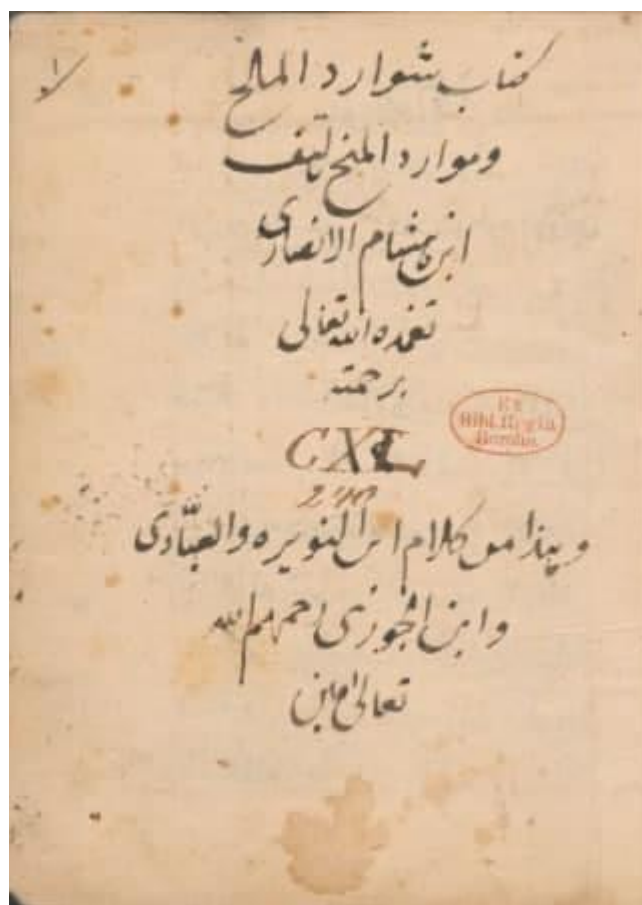 ١
كتاب شوارد الملح
وموارد المنح تاليف
ابن هشام الانصاري
تغمده الله تعالى
برحمته
Ex
Bibl. Regia
Berolin.
CXL
وهذا من كلام ابن النويره والعبّادى
وابن الجوزى رحمهم الله
تعالى امين